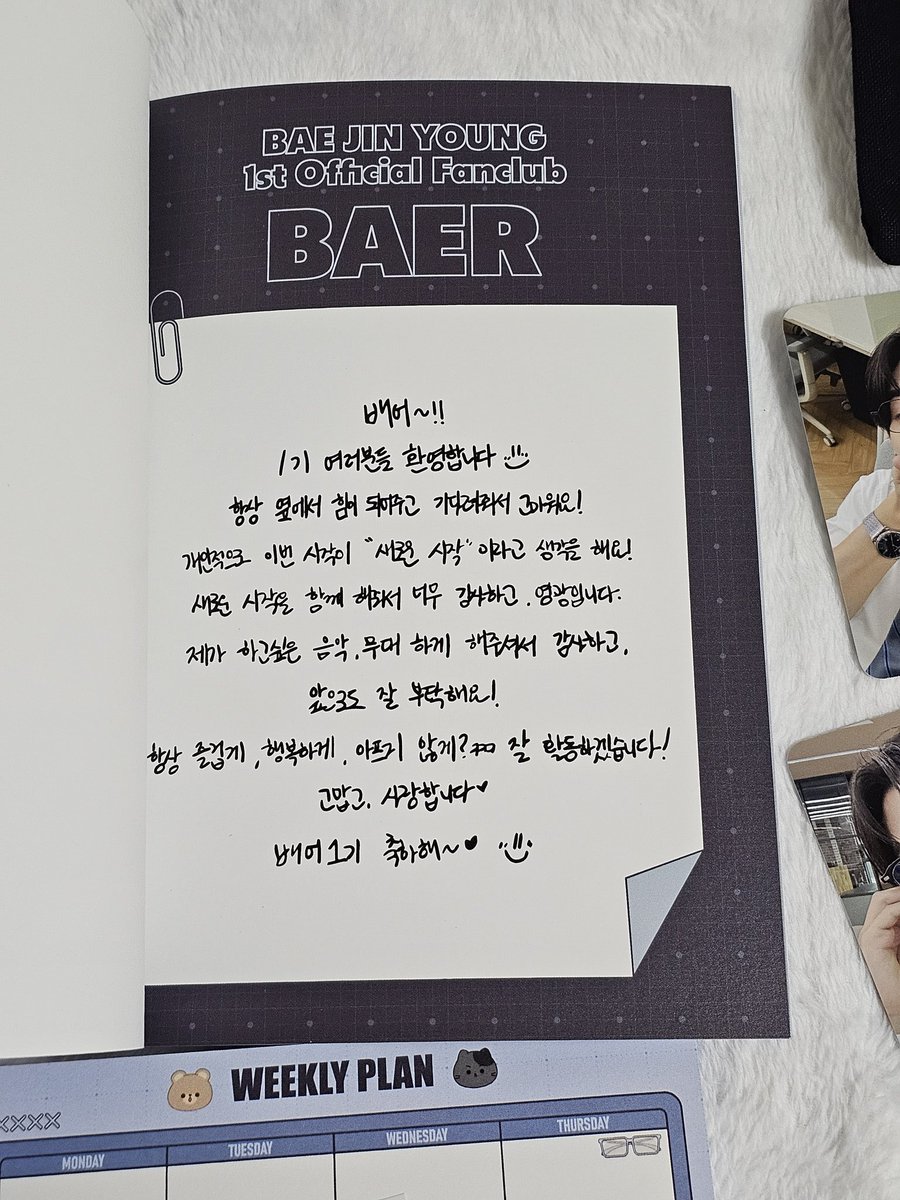 BAE JIN YOUNG
1st Official Fanclub
BAER
배어~!!
1기 여러분들 환영합니다
항상 옆에서 힘이 되어주고 기다려줘서 고마워요!
개인적으로 이번 시작이 "새로운 시작"이라고 생각을 해요!
새로운 시작을 함께 해줘서 너무 감사하고, 영광입니다.
제가 하고싶은 음악, 무대 하게 해주셔서 감사하고,
앞으로도 잘 부탁해요!
항상 즐겁게, 행복하게, 아프지 않게? 잘 활동하겠습니다!
고맙고, 사랑합니다♥
배어 1기 축하해~♥
WEEKLY PLAN
XXXX
MONDAY TUESDAY WEDNESDAY THURSDAY